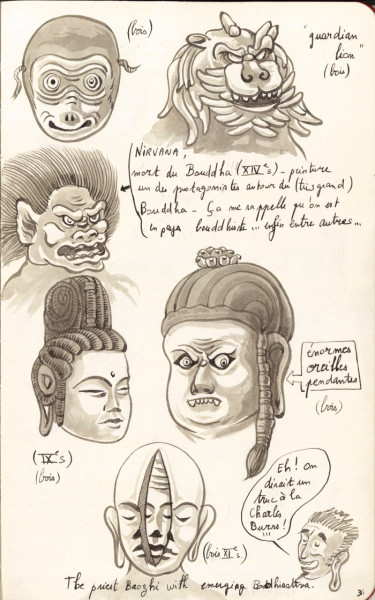 (bois)
"guardian
lion"
(bois)
NIRVANA,
mort du Bouddha (XIVe s) - peinture
un des protagonistes autour du (très grand)
Bouddha - Ça me rappelle qu'on est
en pays bouddhiste... enfin entre autres...
énormes
oreilles
pendantes
(bois)
(IXe s)
(bois)
(bois XIe s)
Eh! On
dirait un
truc à la
Charles
Burns!
...
The priest Baozhi with emerging Bodhisattva.